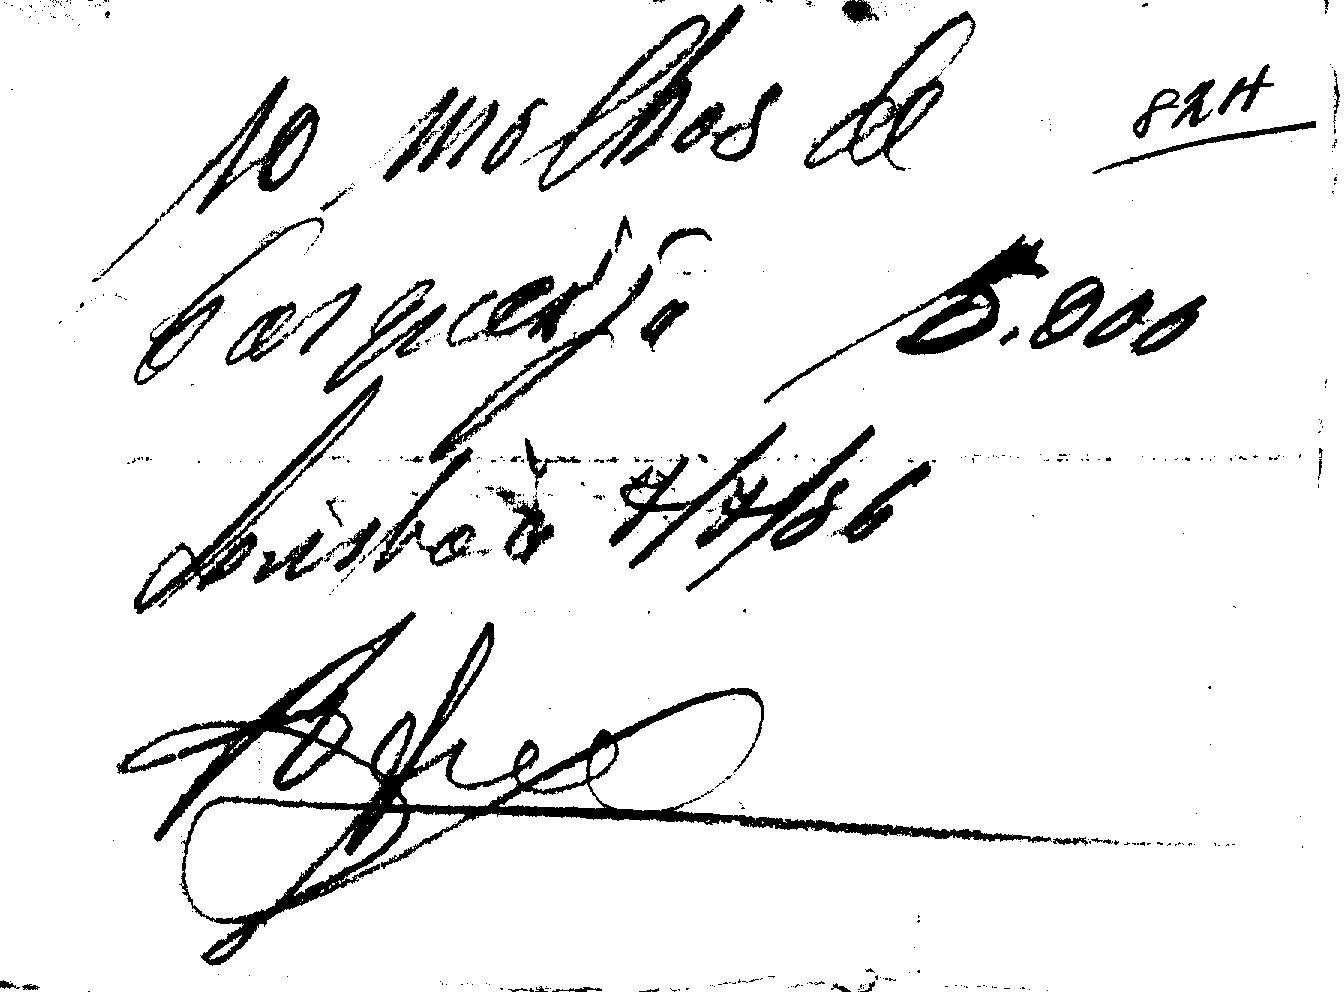 10 molhos de
SRH
Carqueija 5.000
Lisboa 7/7/86